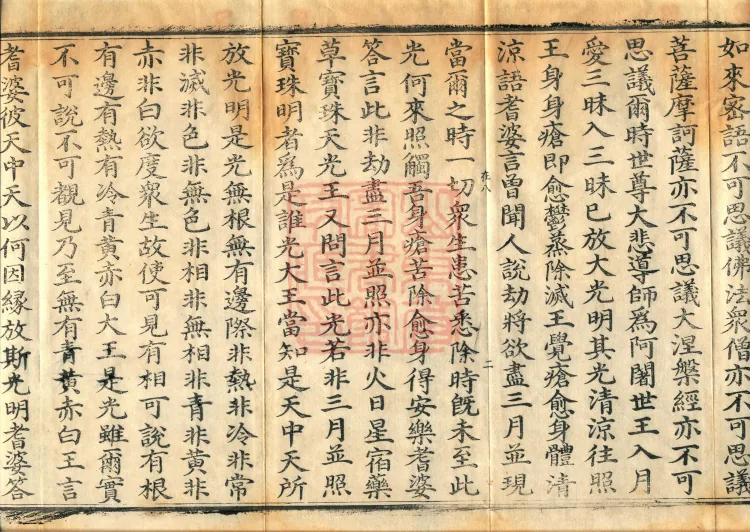 如來宻語不可思議佛法衆僧亦不可思議
菩薩摩訶薩亦不可思議大涅槃經亦不可
思議爾時世尊大悲導師爲阿闍世王入月
愛三昧入三昧已放大光明其光清涼往照
王身身瘡即愈鬱蒸除滅王覺瘡愈身體清
涼語耆婆言曽聞人說劫將欲盡三月並現
當爾之時一切衆生患苦悉除時旣未至此
光何來照觸吾身瘡苦除愈身得安樂耆婆
答言此非劫盡三月並照亦非火日星宿藥
草寶珠天光王又問言此光若非三月並照
寶珠明者爲是誰光大王當知是天中天所
放光明是光無根無有邊際非熱非冷非常
非滅非色非無色非相非無相非青非黃非
赤非白欲度衆生故使可見有相可說有根
有邊有熱有冷青黃赤白大王是光雖爾實
不可說不可覩見乃至無有青黃赤白王言
耆婆彼天中天以何因緣放斯光明耆婆答
在八
二